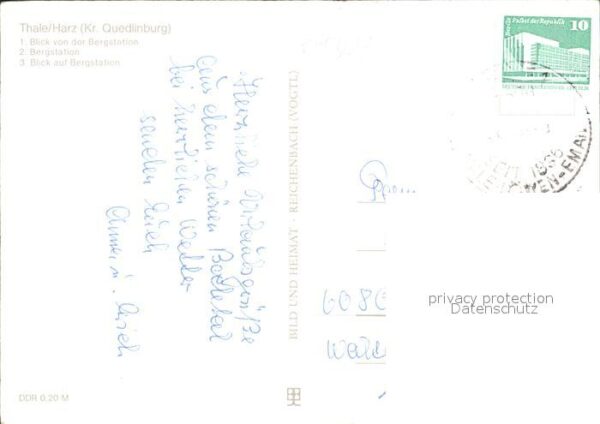 Thale/Harz (Kr. Quedlinburg)
1. Blick von der Bergstation
2. Bergstation
3. Blick auf Bergstation
Herzliche Urlaubsgrüße
aus dem schönen Bodetal
bei herrlichem Wetter
senden Euch
Anne u. Erich
BILD UND HEIMAT · REICHENBACH (VOGTL)
Berlin Palast der Republik
10
1886
WEN-EMAI
Fam
608
Wald
privacy protection
Datenschutz
DDR 0,20 M